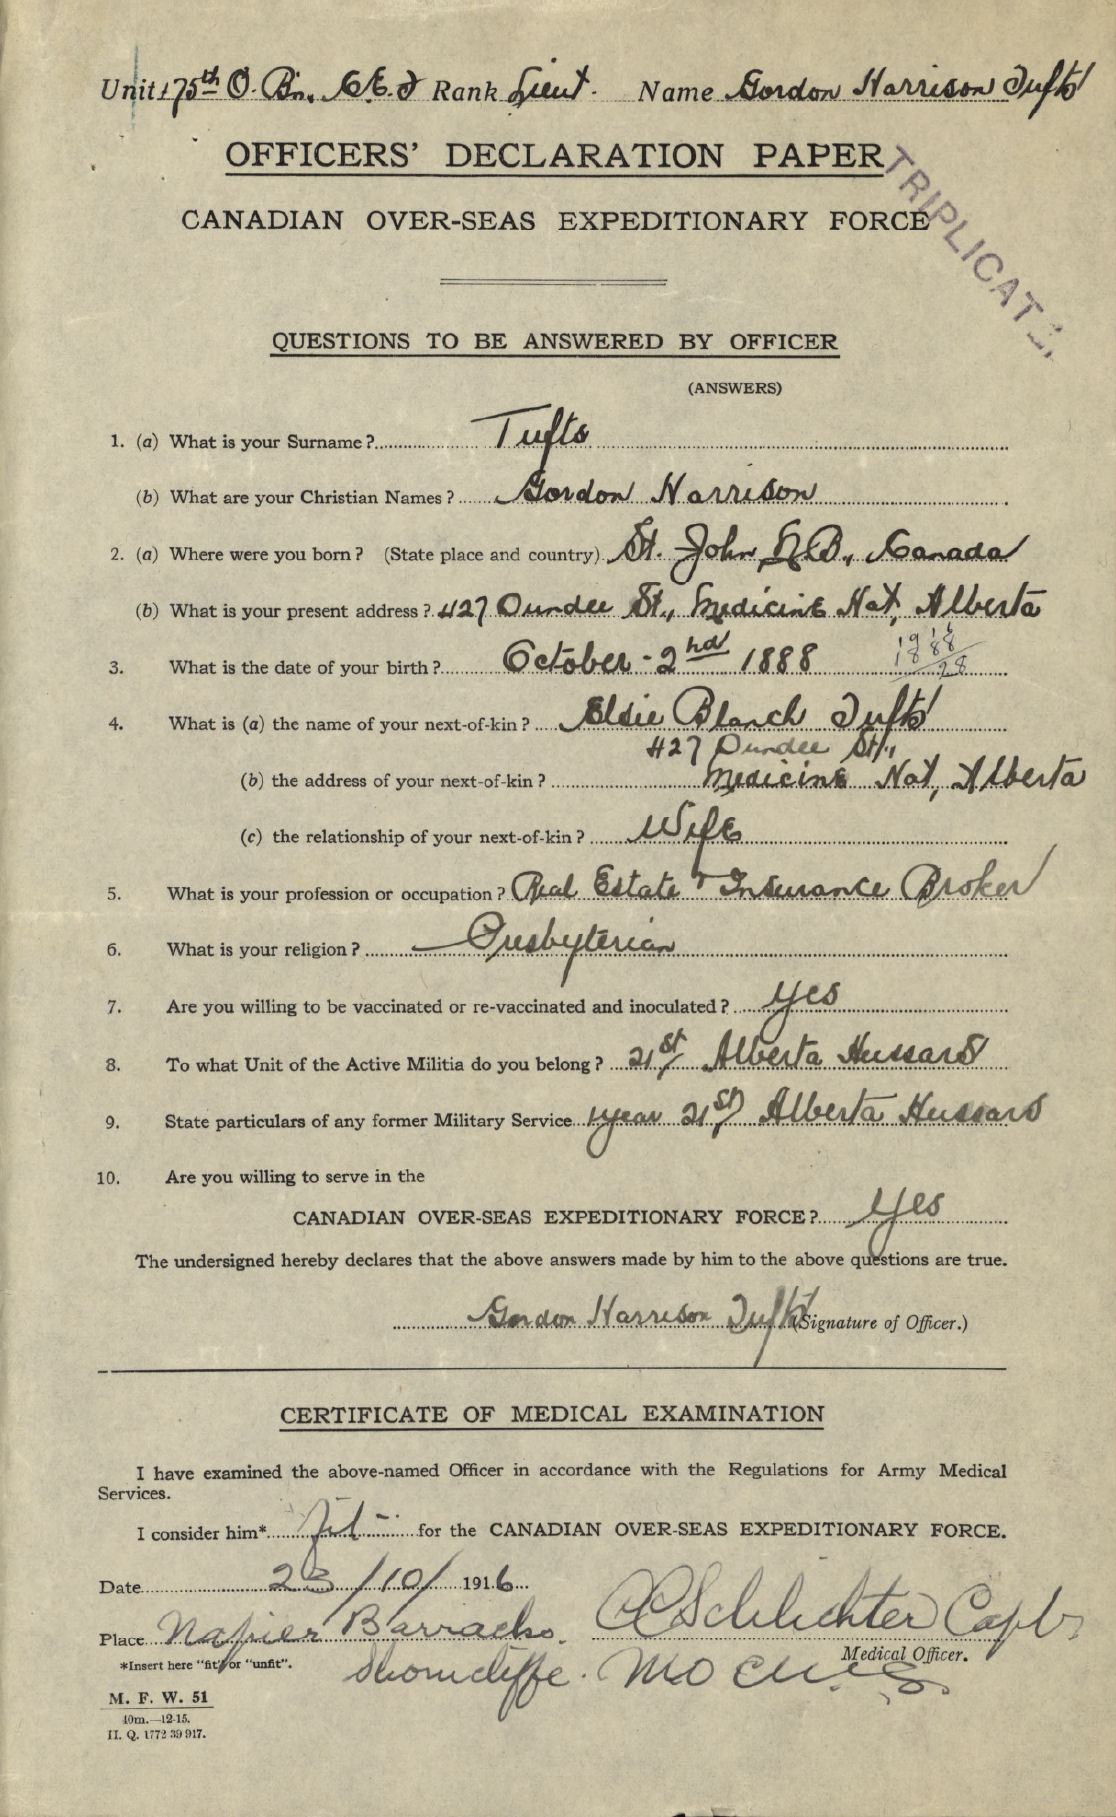 Unit 175th O. Bn. C.E.F Rank Lieut. Name Gordon Harrison Tufts
OFFICERS' DECLARATION PAPER
TRIPLICATE.
CANADIAN OVER-SEAS EXPEDITIONARY FORCE
QUESTIONS TO BE ANSWERED BY OFFICER
(ANSWERS)
1. (a) What is your Surname? Tufts
(b) What are your Christian Names? Gordon Harrison
2. (a) Where were you born? (State place and country) St. John N.B., Canada
(b) What is your present address? 427 Dundee St., Medicine Hat, Alberta
3. What is the date of your birth? October - 2nd 1888
1916
1888
28
4. What is (a) the name of your next-of-kin? Elsie Blanch Tufts
427 Dundee St.,
(b) the address of your next-of-kin? Medicine Hat, Alberta
(c) the relationship of your next-of-kin? Wife
5. What is your profession or occupation? Real Estate & Insurance Broker
6. What is your religion? Presbyterian
7. Are you willing to be vaccinated or re-vaccinated and inoculated? yes
8. To what Unit of the Active Militia do you belong? 21st Alberta Hussars
9. State particulars of any former Military Service 1 year 21st Alberta Hussars
10. Are you willing to serve in the
CANADIAN OVER-SEAS EXPEDITIONARY FORCE? Yes
The undersigned hereby declares that the above answers made by him to the above questions are true.
Gordon Harrison Tufts (Signature of Officer.)
CERTIFICATE OF MEDICAL EXAMINATION
I have examined the above-named Officer in accordance with the Regulations for Army Medical
Services.
I consider him* fit for the CANADIAN OVER-SEAS EXPEDITIONARY FORCE.
Date 23/10/1916
Place Napier Barracks. Schlichter Capt
Medical Officer.
*Insert here "fit" or "unfit". Shorncliffe. M O
M. F. W. 51
40m.—12-15.
H. Q. 1772 39 917.